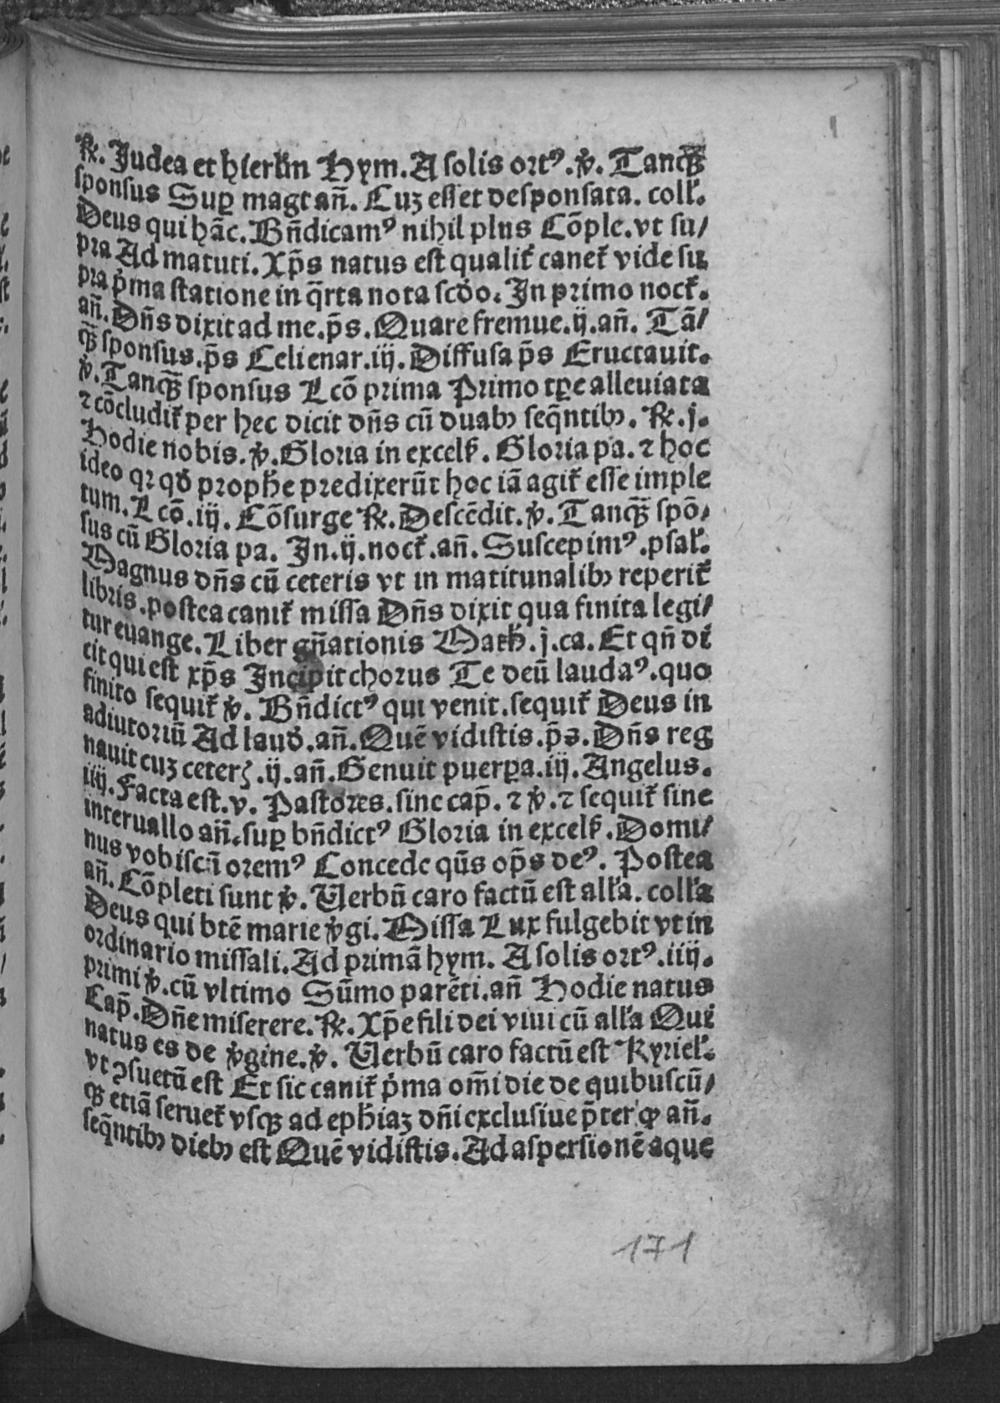 ℟. Judea et hierl̃m Hym. A solis ortꝰ. ℣. Tancꝗ̃
sponsus Suꝑ magt añ. Cuꝫ esset desponsata. coll̃.
Deus qui hãc. Bñdicamꝰ nihil plus Cõple. vt su/
pra Ad matuti. Xp̃s natus est qualit̃ canet̃ vide su
pra p̃ma statione in q̃rta nota scd̃o. In primo noct̃.
añ. Dñs dixit ad me. p̃s. Quare fremue. ij. añ. Tã/
ꝗ̃ sponsus. p̃s Celi enar. iij. Diffusa p̃s Eructauit.
℣. Tancꝗ̃ sponsus Lcõ prima Primo tꝑe alleuiata
⁊ cõcludit̃ per hec dicit dñs cũ duabꝫ seq̃ntibꝫ. ℟. j.
Hodie nobis. ℣. Gloria in excels̃. Gloria pa. ⁊ hoc
ideo qꝛ qd̃ prophe predixerũt hoc iã agit̃ esse imple
tum. Lcõ. iij. Cõsurge ℟. Descẽdit. ℣. Tancꝗ̃ spõ/
sus cũ Gloria pa. In. ij. noct̃. añ. Suscepimꝰ. psal̃.
Magnus dñs cũ ceteris vt in matitunalibꝫ reperit̃
libris. postea canit̃ missa Dñs dixit qua finita legi/
tur euange. Liber gñationis Math̃. j. ca. Et qñ di
cit qui est xp̃s Incipit chorus Te deũ laudaꝰ. quo
finito sequit̃ ℣. Bñdictꝰ qui venit. sequit̃ Deus in
adiutoriũ Ad laud̃. añ. Quẽ vidistis. p̃s. Dñs reg
nauit cuꝫ ceterꝭ. ij. añ. Genuit puerꝑa. iij. Angelus.
iiij. Facta est. v. Pastores. sine cap̃. ⁊ ℣. ⁊ sequit̃ sine
interuallo añ. suꝑ bñdictꝰ Gloria in excels̃. Domi/
nus vobiscũ oremꝰ Concede q̃s op̃s deꝰ. Postea
añ. Cõpleti sunt ℣. Uerbũ caro factũ est all̃a. coll̃a
Deus qui btẽ marie ℣gi. Missa Lux fulgebit vt in
ordinario missali. Ad primã hym. A solis ortꝰ. iiij.
primi ℣. cũ vltimo Sũmo parẽti. añ Hodie natus
Cap̃. Dñe miserere. ℟. Xp̃e fili dei viui cũ all̃a Qui
natus es de ℣gine. ℣. Uerbũ caro factũ est Kyriel̃.
vt ꝯsuetũ est Et sic canit̃ p̃ma om̃i die de quibuscũ/
ꝗ̃ etiã seruet̃ vsqꝫ ad eph̃iaꝫ dñi exclusiue p̃ter ꝙ añ.
seq̃ntibꝫ diebꝫ est Quẽ vidistis. Ad aspersionẽ aque
171